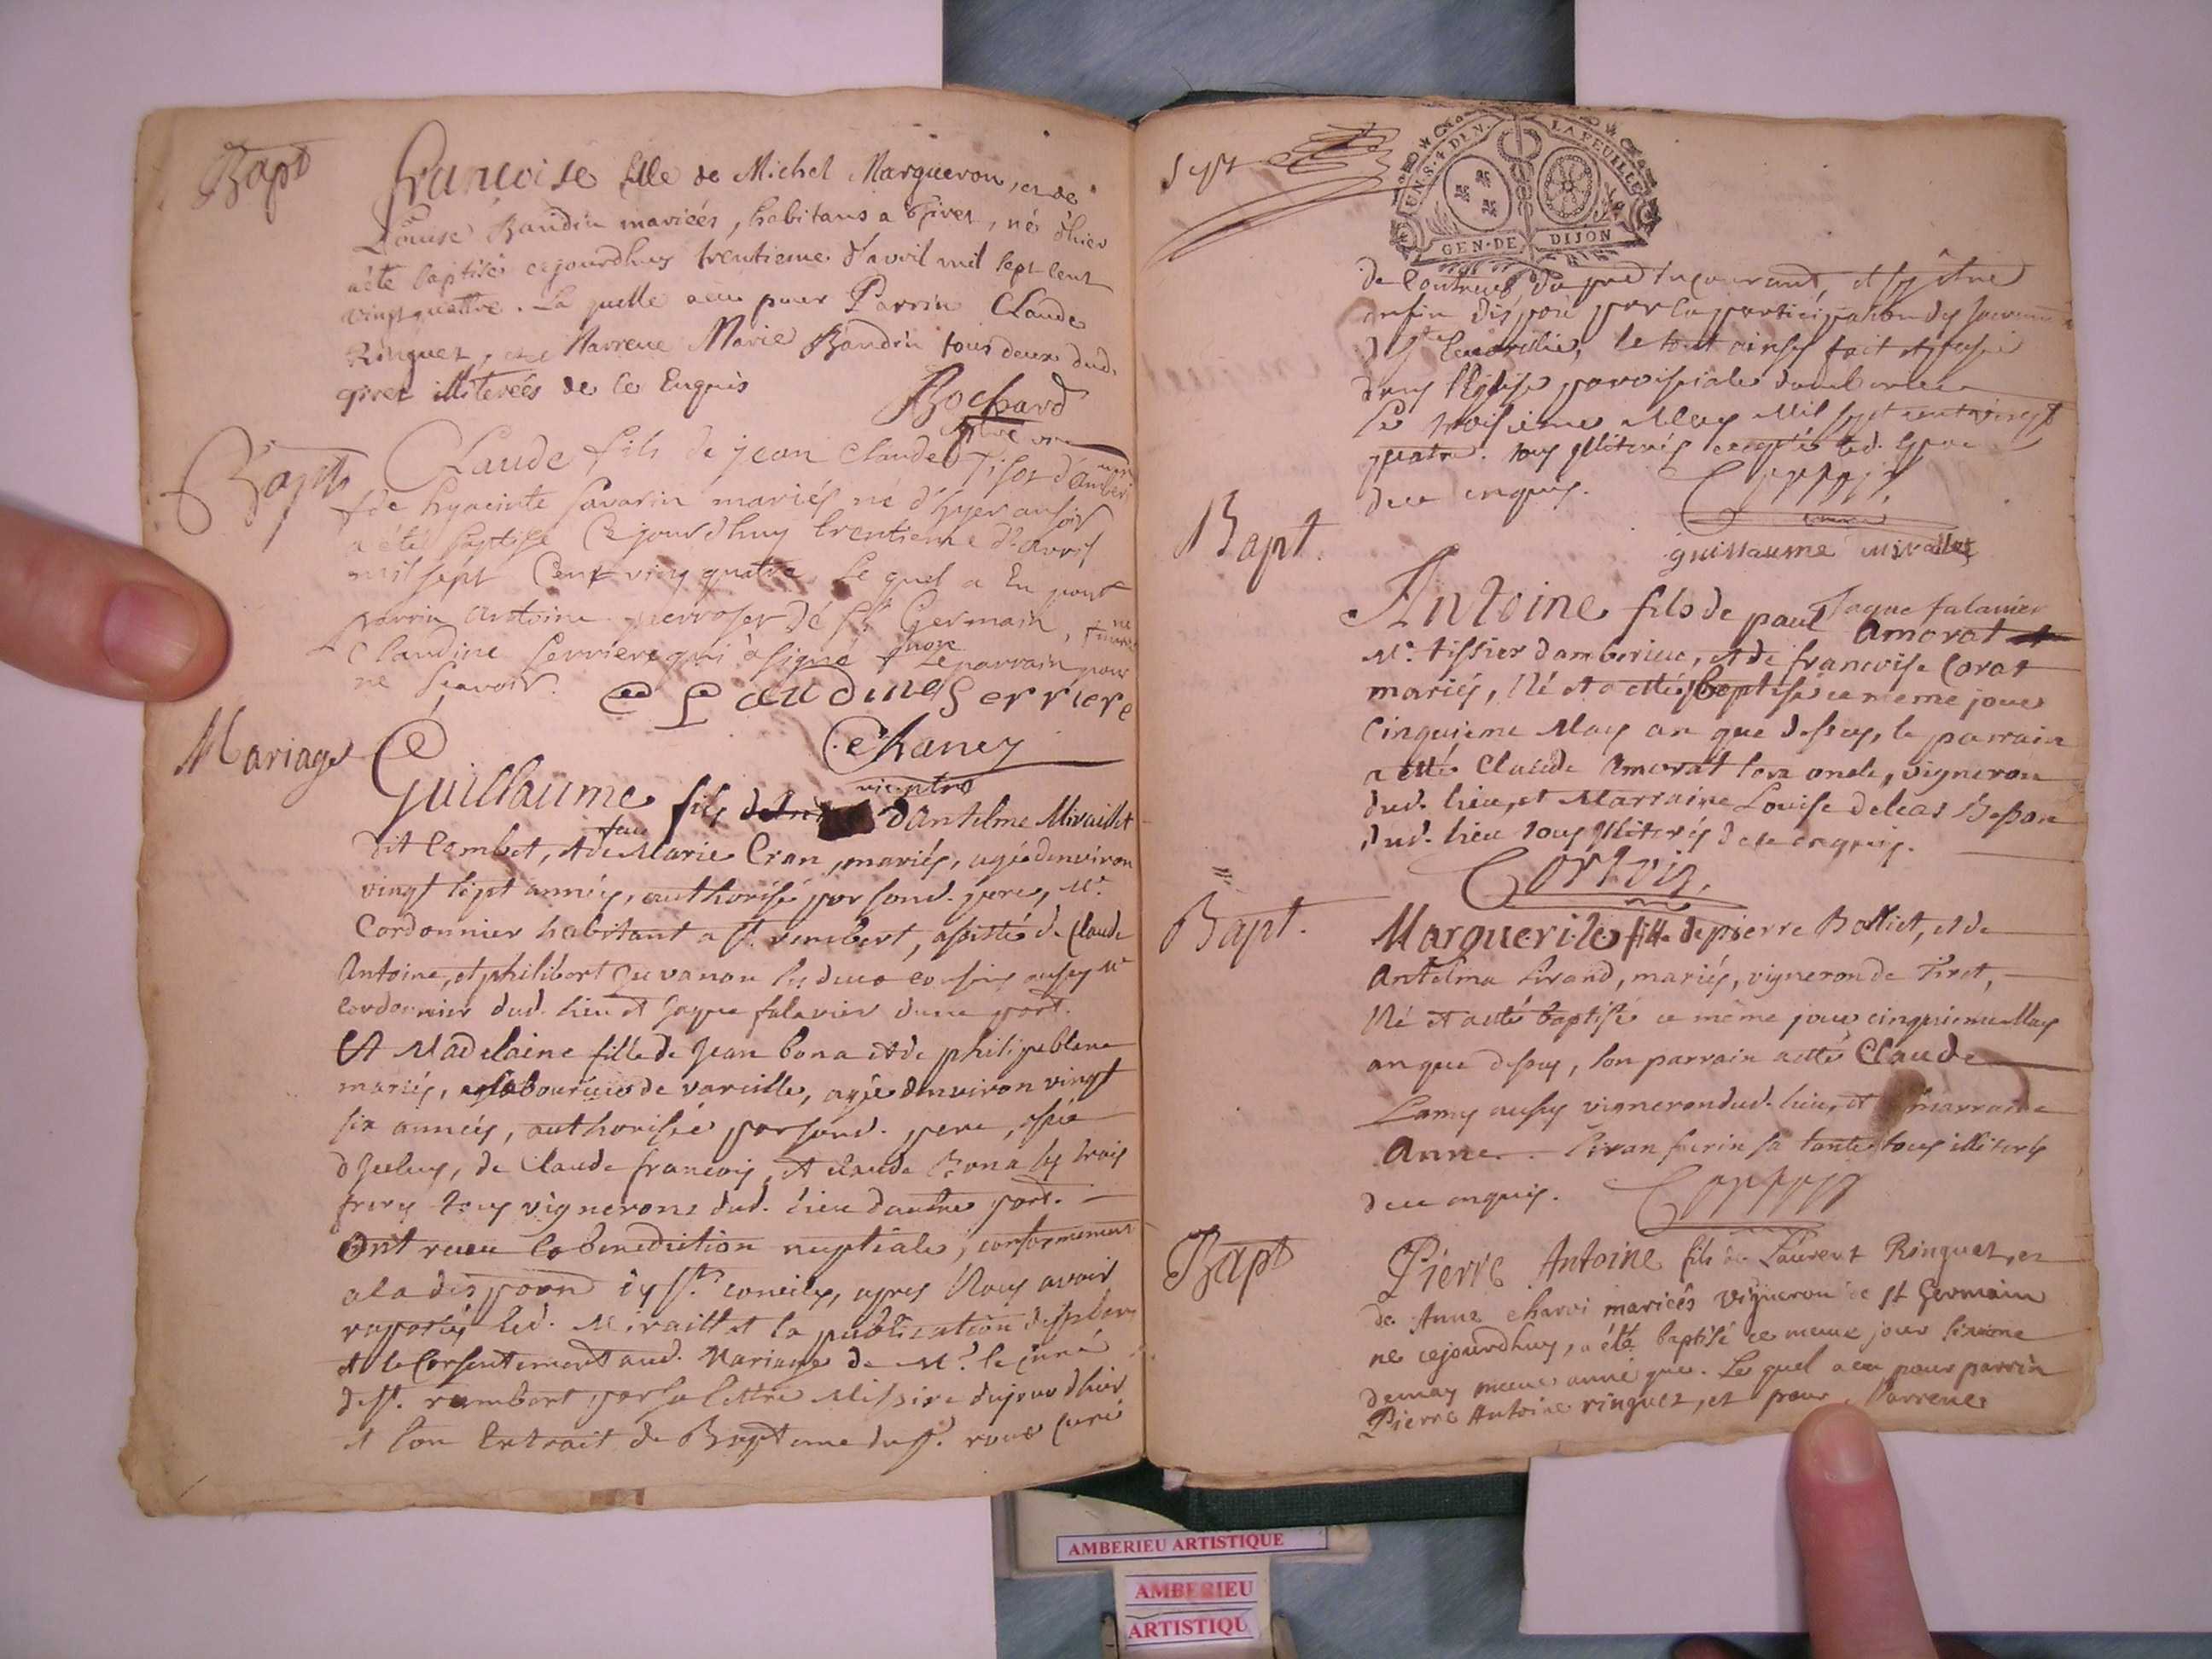 Bapt
françoise fille de Michel Margueron, et de
Louise Baudin mariées, habitans a Givet, né d'hier
a été baptisé cejourdhuy trentieme d'avril mil sept cent
vingt quattre. La quelle a eu pour Parrin Claude
Ringuet, et Marrene Marie Baudin tous deux dud.
givet illiterées de ce Enquis
Bochard
Bapt
Claude fils de jean Claude Tisot d'amberi
& de hyacinte Savarin mariés né d'hyer au soir
a été baptise Cejourdhuy trentieme d'avril
mil sept Cent ving quatre, le quel a Eu pour
parrin antoine perroset de st Germain,
Claudine Serriere qui a signé & Le parrain pour
ne scavoir.
Claudine Serriere
Chaney
vic. ptre
Mariage
Guillaume fils d'Antelme Miraillet
dit Combet, et de feu Marie Cran, mariés, agé denviron
vingt sept années, authorisé par sond. pere, Me.
Cordonnier habitant a st. rambert, assisté de Claude
Antoine, et philibert Juvanon les deux cousins aussy Me
cordonnier dud. lieu et Jaque falavier dune part.
Et Madelaine fille de Jean bona et de philipe blanc
mariés, laboureur de vareille, agée denviron vingt
six années, authorisée par sond. pere,
d'Iceluy, de Claude francois, et claude Bona les trois
freres tous vignerons dud. lieu dautre part.
Ont receu la benediction nuptiale, conformement
a la des sts. conciles, apres Nous avoir
raporté led. Miraillet la publication des bans
et le Consentement aud. Mariage de Mr. le curé
de st. rambert par sa lettre Missive du jour d'hier
et son Extrait de Bapteme du sr. roux curé
Sept
UN. S. 4. D. L. N.
LA FEUILLE
GEN. DE DIJON
de Contreves du courant, et s'estre
enfin disposé par la participation des sacremens
le tout ainsy fait et passé
dans l'Eglise paroissiale damberieu
le troisieme May Mil sept cent vingt
quatre. tous illiterés excepté led. Epoux
de ce enquis.
guillaume mirallet
Bapt.
Antoine fils de paul Jaque falavier
Amorat
Me. tissier damberieu, et de francoise Corat
mariés, Né et a etté baptisé ce meme jour
Cinquieme May an que dessus, le parrain
a etté Claude Amorat son oncle, vigneron
dud. lieu, et Marraine Louise deleas Besson
dud. lieu tous illiterés de ce enquis.
Cortois
Bapt.
Marguerite fille de pierre Bolliet, et de
Antelma Sirand, mariés, vigneron de Tiret,
Né et a etté baptisé ce même jour cinquieme May
an que dessus, son parrain a etté Claude
Lamy aussy vigneron dud. lieu, et marraine
Anne Sivan sa tante tous illiterés
de ce enquis.
Bapt
Pierre Antoine fils de Laurent Ringuet, et
de Anne charvi mariées vigneron de st Germain
né cejourdhuy, a été baptisé ce meme jour sixieme
demay meme année que. Le quel a eu pour parrin
Pierre Antoine ringuet, et pour Marrene
AMBERIEU ARTISTIQUE
AMBERIEU
ARTISTIQU